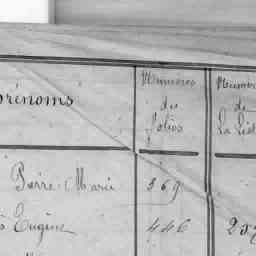 Prénoms
Numéros
des
folios
Numéro
de
La List
Pierre Marie 369
Eugène 446